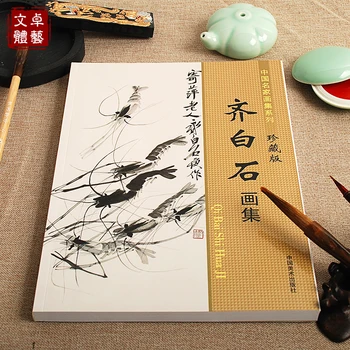 文卓
體藝
寄萍老人齐白石
中国名家画集系列
珍藏版
齐白石
画集
Qi Bai Shi Hua Ji
中国美术出版社